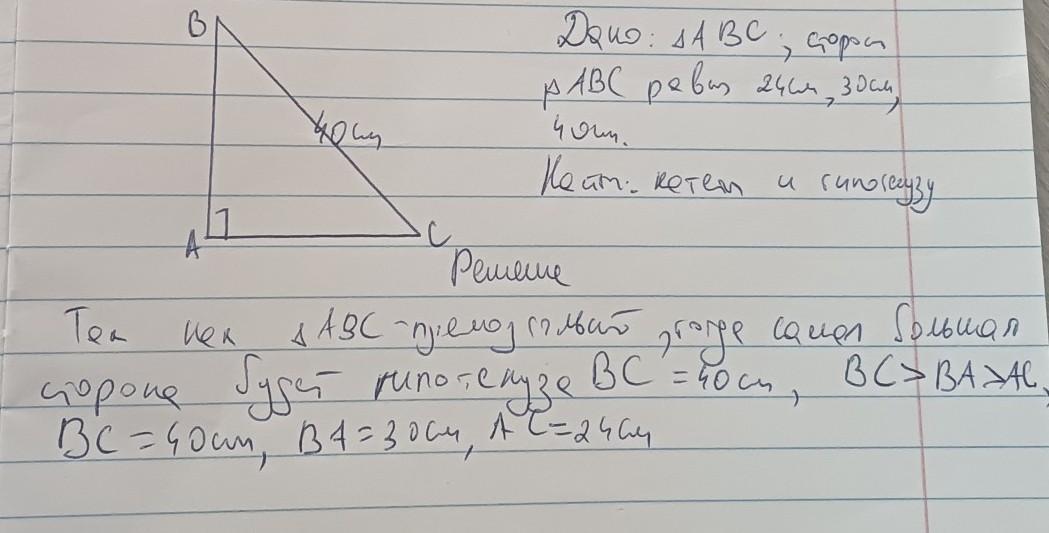 B
Дано: △ABC; сторон
△ABC равн 24см, 30см,
40см
40см.
Найт: катет и гипотенузу
A
C
Решение
Так как △ABC - прямоугольный, тогда самая большая
сторона будет гипотенуза BC = 40см, BC > BA > AC,
BC = 40см, BA = 30см, AC = 24см